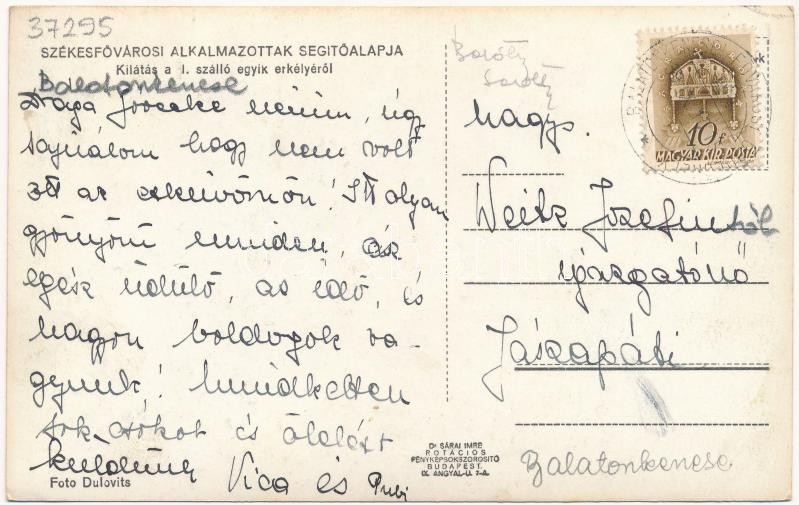 37295
SZÉKESFŐVÁROSI ALKALMAZOTTAK SEGITŐALAPJA
Kilátás a I. szálló egyik erkélyéről
Balatonkenese
Drága Joszeke néném, úgy
sajnálom hogy nem volt
ott az esküvőmön! Itt olyan
gyönyörű minden, az
egész üdülő, az idő, és
nagyon boldogok va-
gyunk! Mindketten
sok csókot és ölelést
küldünk Vica és Pubi
Foto Dulovits
Dr SÁRAI IMRE
ROTÁCIÓS
FÉNYKÉPSOKSZOROSITÓ
BUDAPEST.
IX. ANGYAL-U. 7-A.
10 f
MAGYAR KIR. POSTA
Nagys.
Weitz Jozefin
igazgatónő
Jászapáti
Balatonkenese